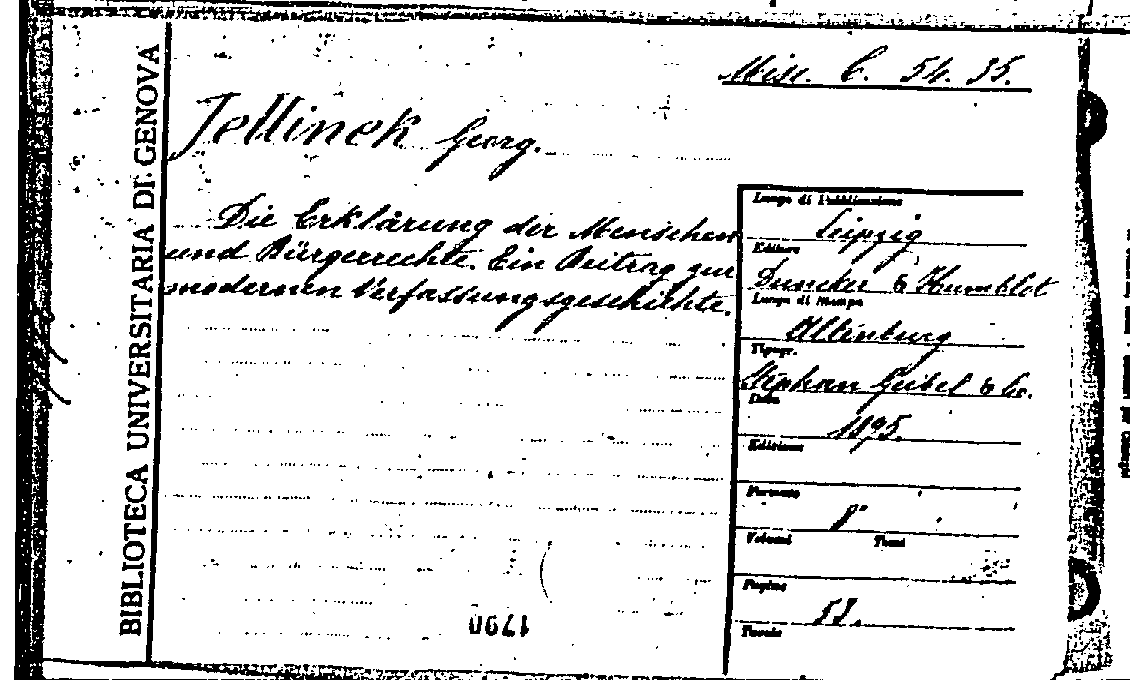 BIBLIOTECA UNIVERSITARIA DI GENOVA
Misc. C. 54. 35.
Jellinek Georg.
Die Erklärung der Menschen
und Bürgerrechte. Ein Beitrag zur
modernen Verfassungsgeschichte.
Luogo di Pubblicazione
Leipzig
Editore
Duncker & Humblot
Luogo di Stampa
Altenburg
Tipogr.
Stephan Geibel & Co.
Data
1895.
Edizione
Formato
8°
Volumi Tomi
Pagine
53.
Tavole